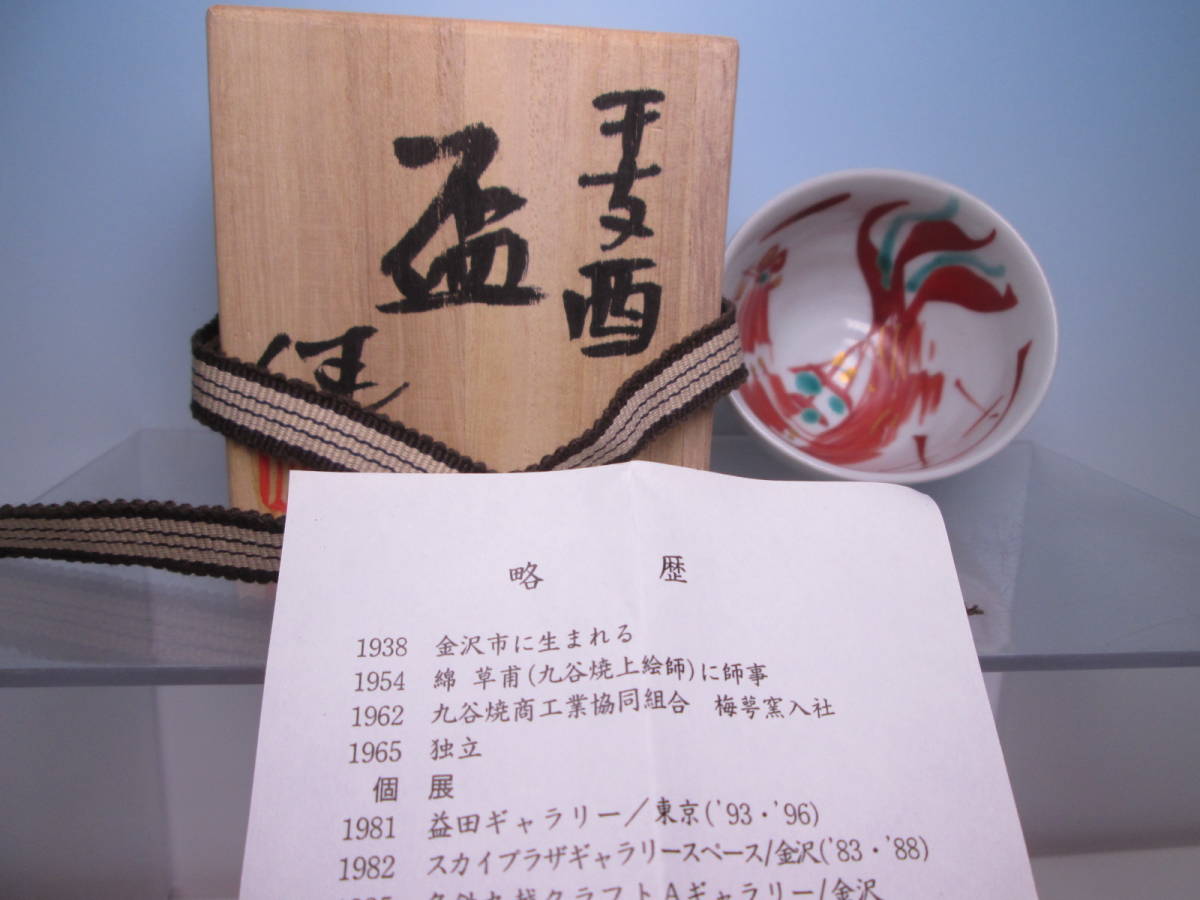 干支酉
盃
略 歴
1938 金沢市に生まれる
1954 綿 草甫(九谷焼上絵師)に師事
1962 九谷焼商工業協同組合 梅萼窯入社
1965 独立
個 展
1981 益田ギャラリー/東京('93・'96)
1982 スカイプラザギャラリースペース/金沢('83・'88)
クラフトAギャラリー/金沢